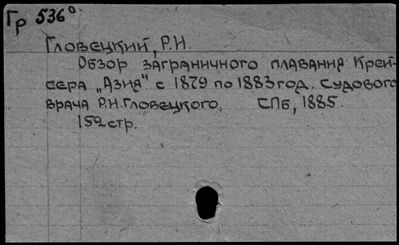 Гр 536°
Гловецкий, Р.Н.
Обзор заграничного плавания крей-
сера „Азия" с 1879 по 1883 год. Судового
врача Р.Н. Гловецкого. СПб, 1885.
152 стр.